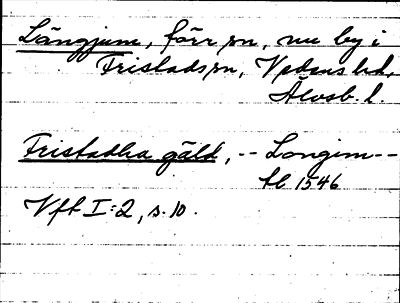 Längjum, förr sn, nu by i
Fristads sn, Vedens hd,
Älvsb. l.
Fristadha gäld, -- Longim --
tl 1546
Vfl I:2, s. 10.